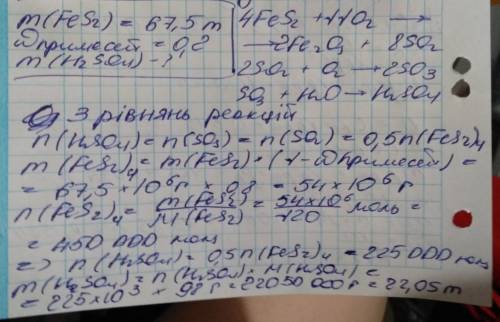 m(FeS₂) = 67,5 т
ω примесей = 0,2
m(H₂SO₄) - ?
4FeS₂ + 11O₂ →
→ 2Fe₂O₃ + 8SO₂
2SO₂ + O₂ → 2SO₃
SO₃ + H₂O → H₂SO₄
З рівнянь реакцій
n(H₂SO₄) = n(SO₃) = n(SO₂) = 0,5n(FeS₂)ч
m(FeS₂)ч = m(FeS₂) * (1-ω примесей) =
= 67,5 * 10⁶ г * 0,8 = 54 * 10⁶ г
n(FeS₂)ч = m(FeS₂)/M(FeS₂) = 54*10⁶/120 моль =
= 450 000 моль
=> n(H₂SO₄) = 0,5n(FeS₂)ч = 225 000 моль
m(H₂SO₄) = n(H₂SO₄) * M(H₂SO₄) =
= 225*10³ * 98 г = 22050 000 г = 22,05 т